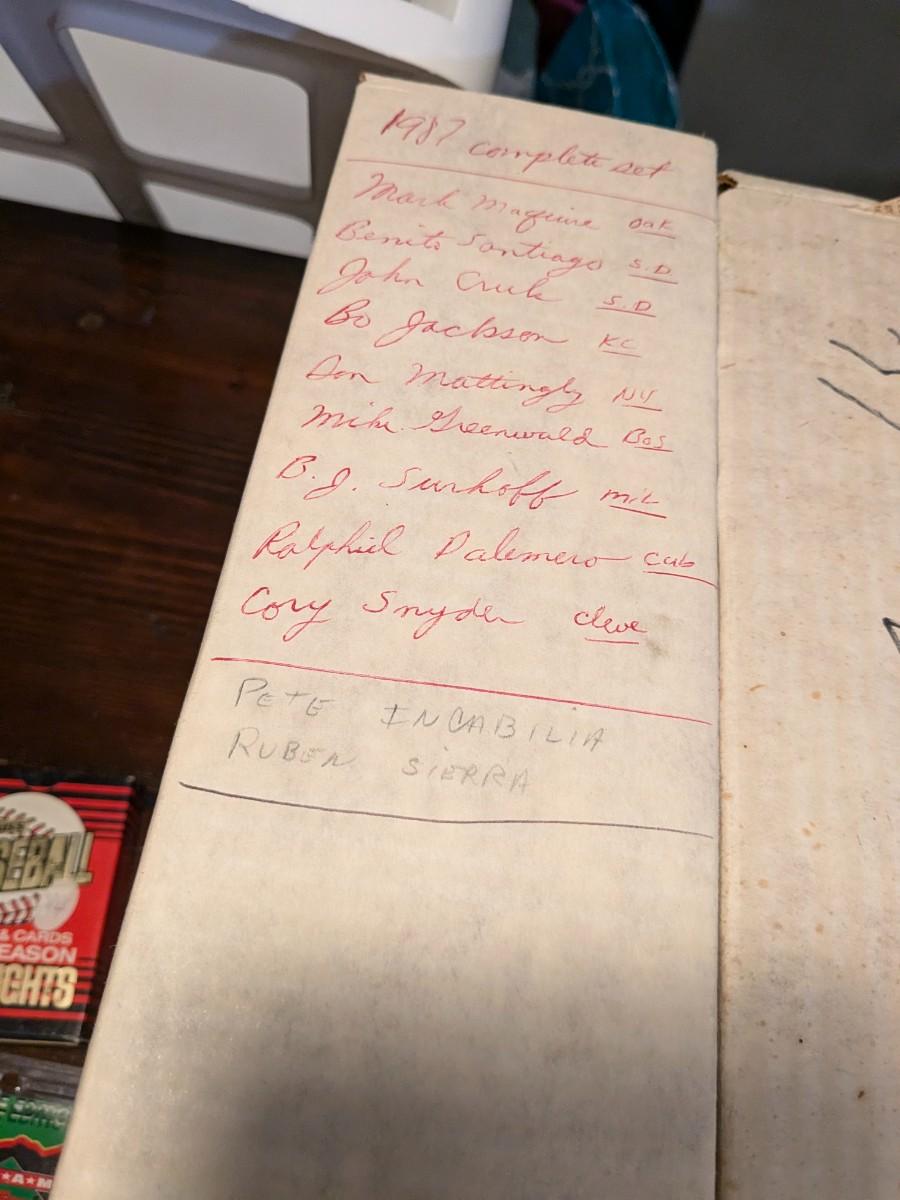 1987 complete set
Mark Maguire Oak
Benito Santiago S.D
John Cruk S.D
Bo Jackson KC
Don Mattingly NY
Mike Greenwald Bos
B.J. Surhoff mil
Ralphiel Palemero cub
Cory Snyder cleve
PETE INCABILIA
RUBEN SIERRA
SEBALL
& CARDS
EASON
GHTS